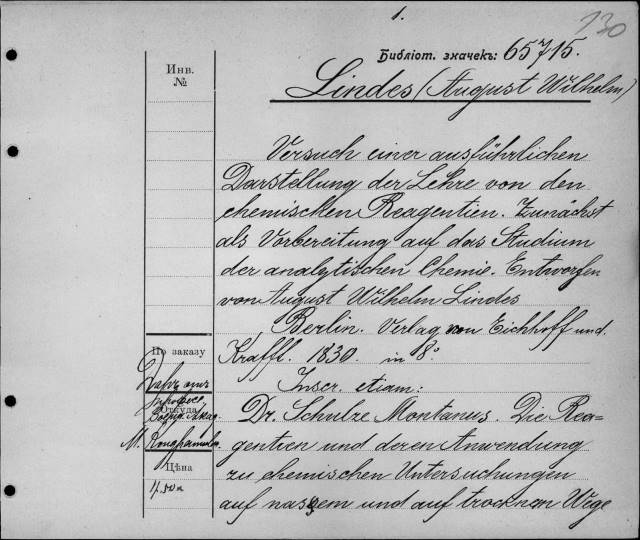 1.
130
Библіот. значекъ: 65715.
Инв.
№
Lindes (August Wilhelm)
Versuch einer ausführlichen
Darstellung der Lehre von den
chemischen Reagentien. Zunächst
als Vorbereitung auf das Studium
der analytischen Chemie. Entworfen
von August Wilhelm Lindes
Berlin. Verlag von Eichhoff und
Krafft. 1830. in 8°
Inscr. etiam:
Dr. Schulze Montanus. Die Rea-
gentien und deren Anwendung
zu chemischen Untersuchungen
auf nassem und auf trocknem Wege
По заказу
Даръ отъ
Откуда
М.
Цѣна